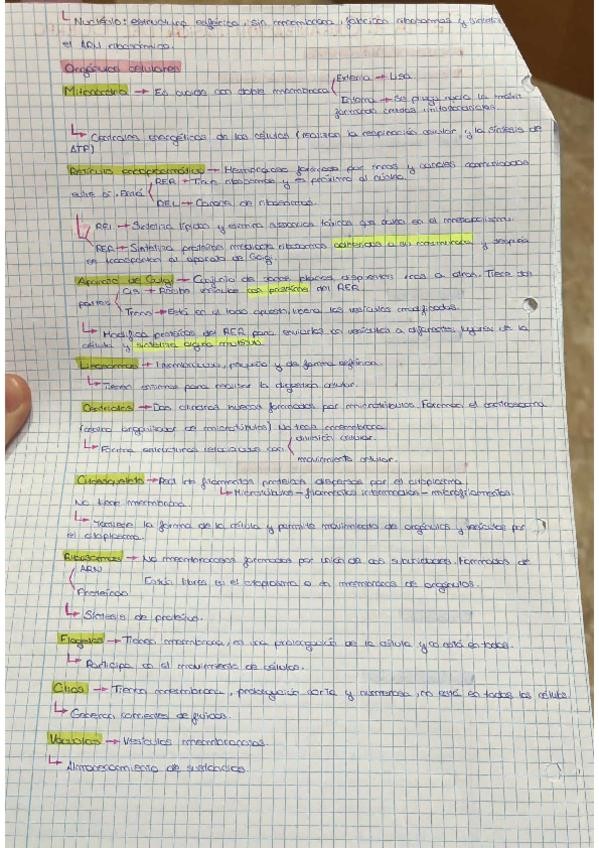 ↳ Nucléolo: estructura esférica, sin membrana, fabrica ribosomas y sintetiza
el ARN ribosómico.
Orgánulos celulares
Mitocondria → Es ovoide con doble membrana Externa → Lisa
Interna → Se pliega hacia la matriz
formando crestas mitocondriales.
↳ Centrales energéticas de las células (realizan la respiración celular y la síntesis de
ATP)
Retículo endoplasmático → formado por y canales comunicados
entre sí. RER → Tiene ribosomas y es próximo al núcleo
REL → Carece de ribosomas.
REL → Sintetiza lípidos y elimina sustancias tóxicas que en el metabolismo.
RER → Sintetiza proteínas mediante ribosomas adheridos a su membrana y después
se transportan al aparato de Golgi.
Aparato de Golgi → Conjunto de sacos dispuestos unos a otros. Tiene dos
partes Cis → Recibe vesículas con proteínas del RER
Trans → Está en el lado opuesto, libera las vesículas modificadas.
↳ Modifica proteínas del RER para enviarlas en vesículas a diferentes lugares de la
célula y sintetiza
Lisosomas → Membranoso, pequeño y de forma esférica.
↳ Tienen enzimas para realizar la digestión celular.
Centriolos → Dos cilindros huecos formados por microtúbulos. Forman el centrosoma
(centro organizador de microtúbulos) No tiene membrana
↳ Forma estructuras relacionadas con división celular.
movimiento celular.
Citoesqueleto → Red de filamentos proteicos dispersos por el citoplasma
↳ Microtúbulos - filamentos intermedios - microfilamentos.
No tiene membrana
↳ Mantiene la forma de la célula y permite movimiento de orgánulos y vesículas por
el citoplasma.
Ribosomas → No membranosos formados por unión de dos subunidades. Formados de
ARN
Proteínas Están libres en el citoplasma o en membranas de orgánulos.
↳ Síntesis de proteínas.
Flagelos → Tienen membrana, es una prolongación de la célula y no está en todas.
↳ Participa en el movimiento de células.
Cilios → Tienen membrana, prolongación corta y numerosa, no está en todas las células
↳ Generan corrientes de fluidos.
Vacuolas → Vesículas membranosas.
↳ Almacenamiento de sustancias.